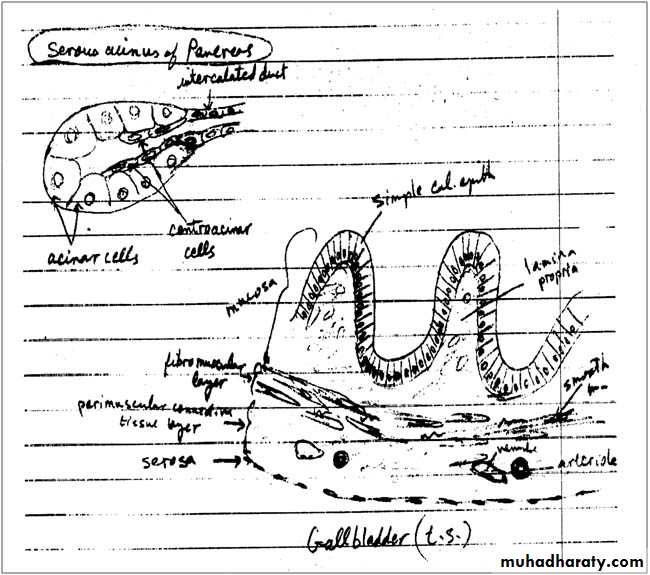 Serous acinus of Pancreas
intercalated duct
acinar cells
centroacinar
cells
simple col. epith
lamina
propria
mucosa
fibromuscular
layer
smooth
m
perimuscular connective
tissue layer
serosa
venule
arteriole
Gallbladder (t.s.)
muhadharaty.com